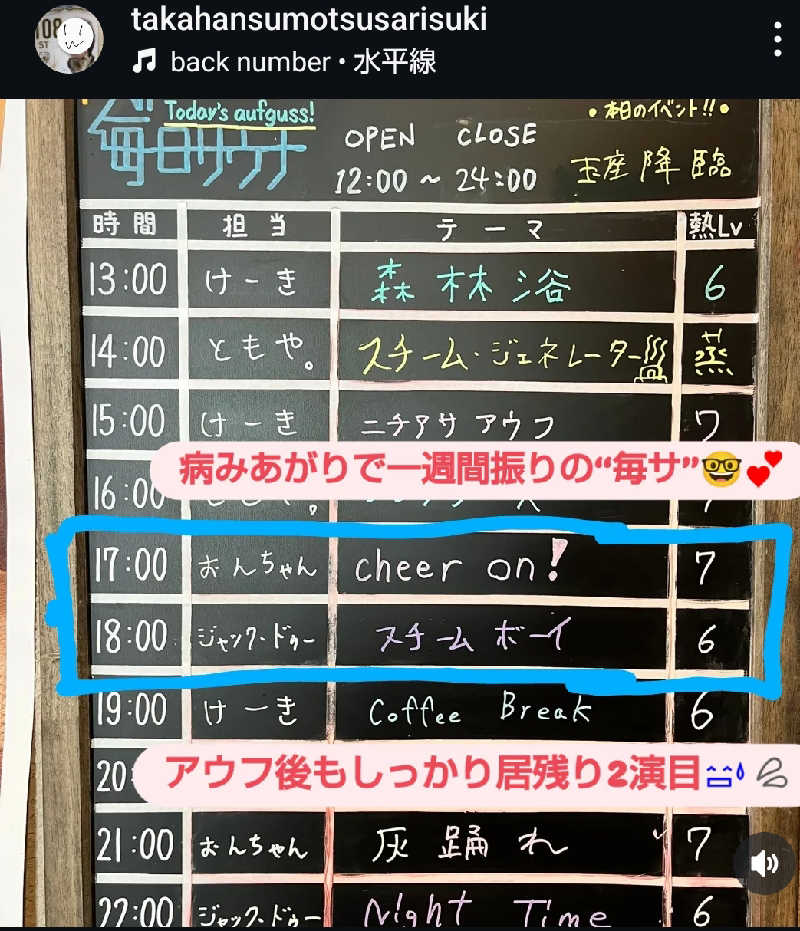 takahansumotsusarisuki
back number • 水平線
Today's aufguss!
毎日サウナ
OPEN CLOSE
12:00 ~ 24:00
•本日のイベント!!•
玉座降臨
時間 担当 テーマ 熱Lv
13:00 けーき 森林浴 6
14:00 ともや。 スチーム・ジェネレーター 蒸
15:00 けーき ニチアサアウフ 7
病みあがりで一週間振りの“毎サ”🤓💕
16:00
17:00 おんちゃん cheer on! 7
18:00 ジャック・ドゥー スチームボーイ 6
19:00 けーき Coffee Break 6
アウフ後もしっかり居残り2演目
20
21:00 おんちゃん 灰踊れ 7
22:00 ジャック・ドゥー Night Time 6